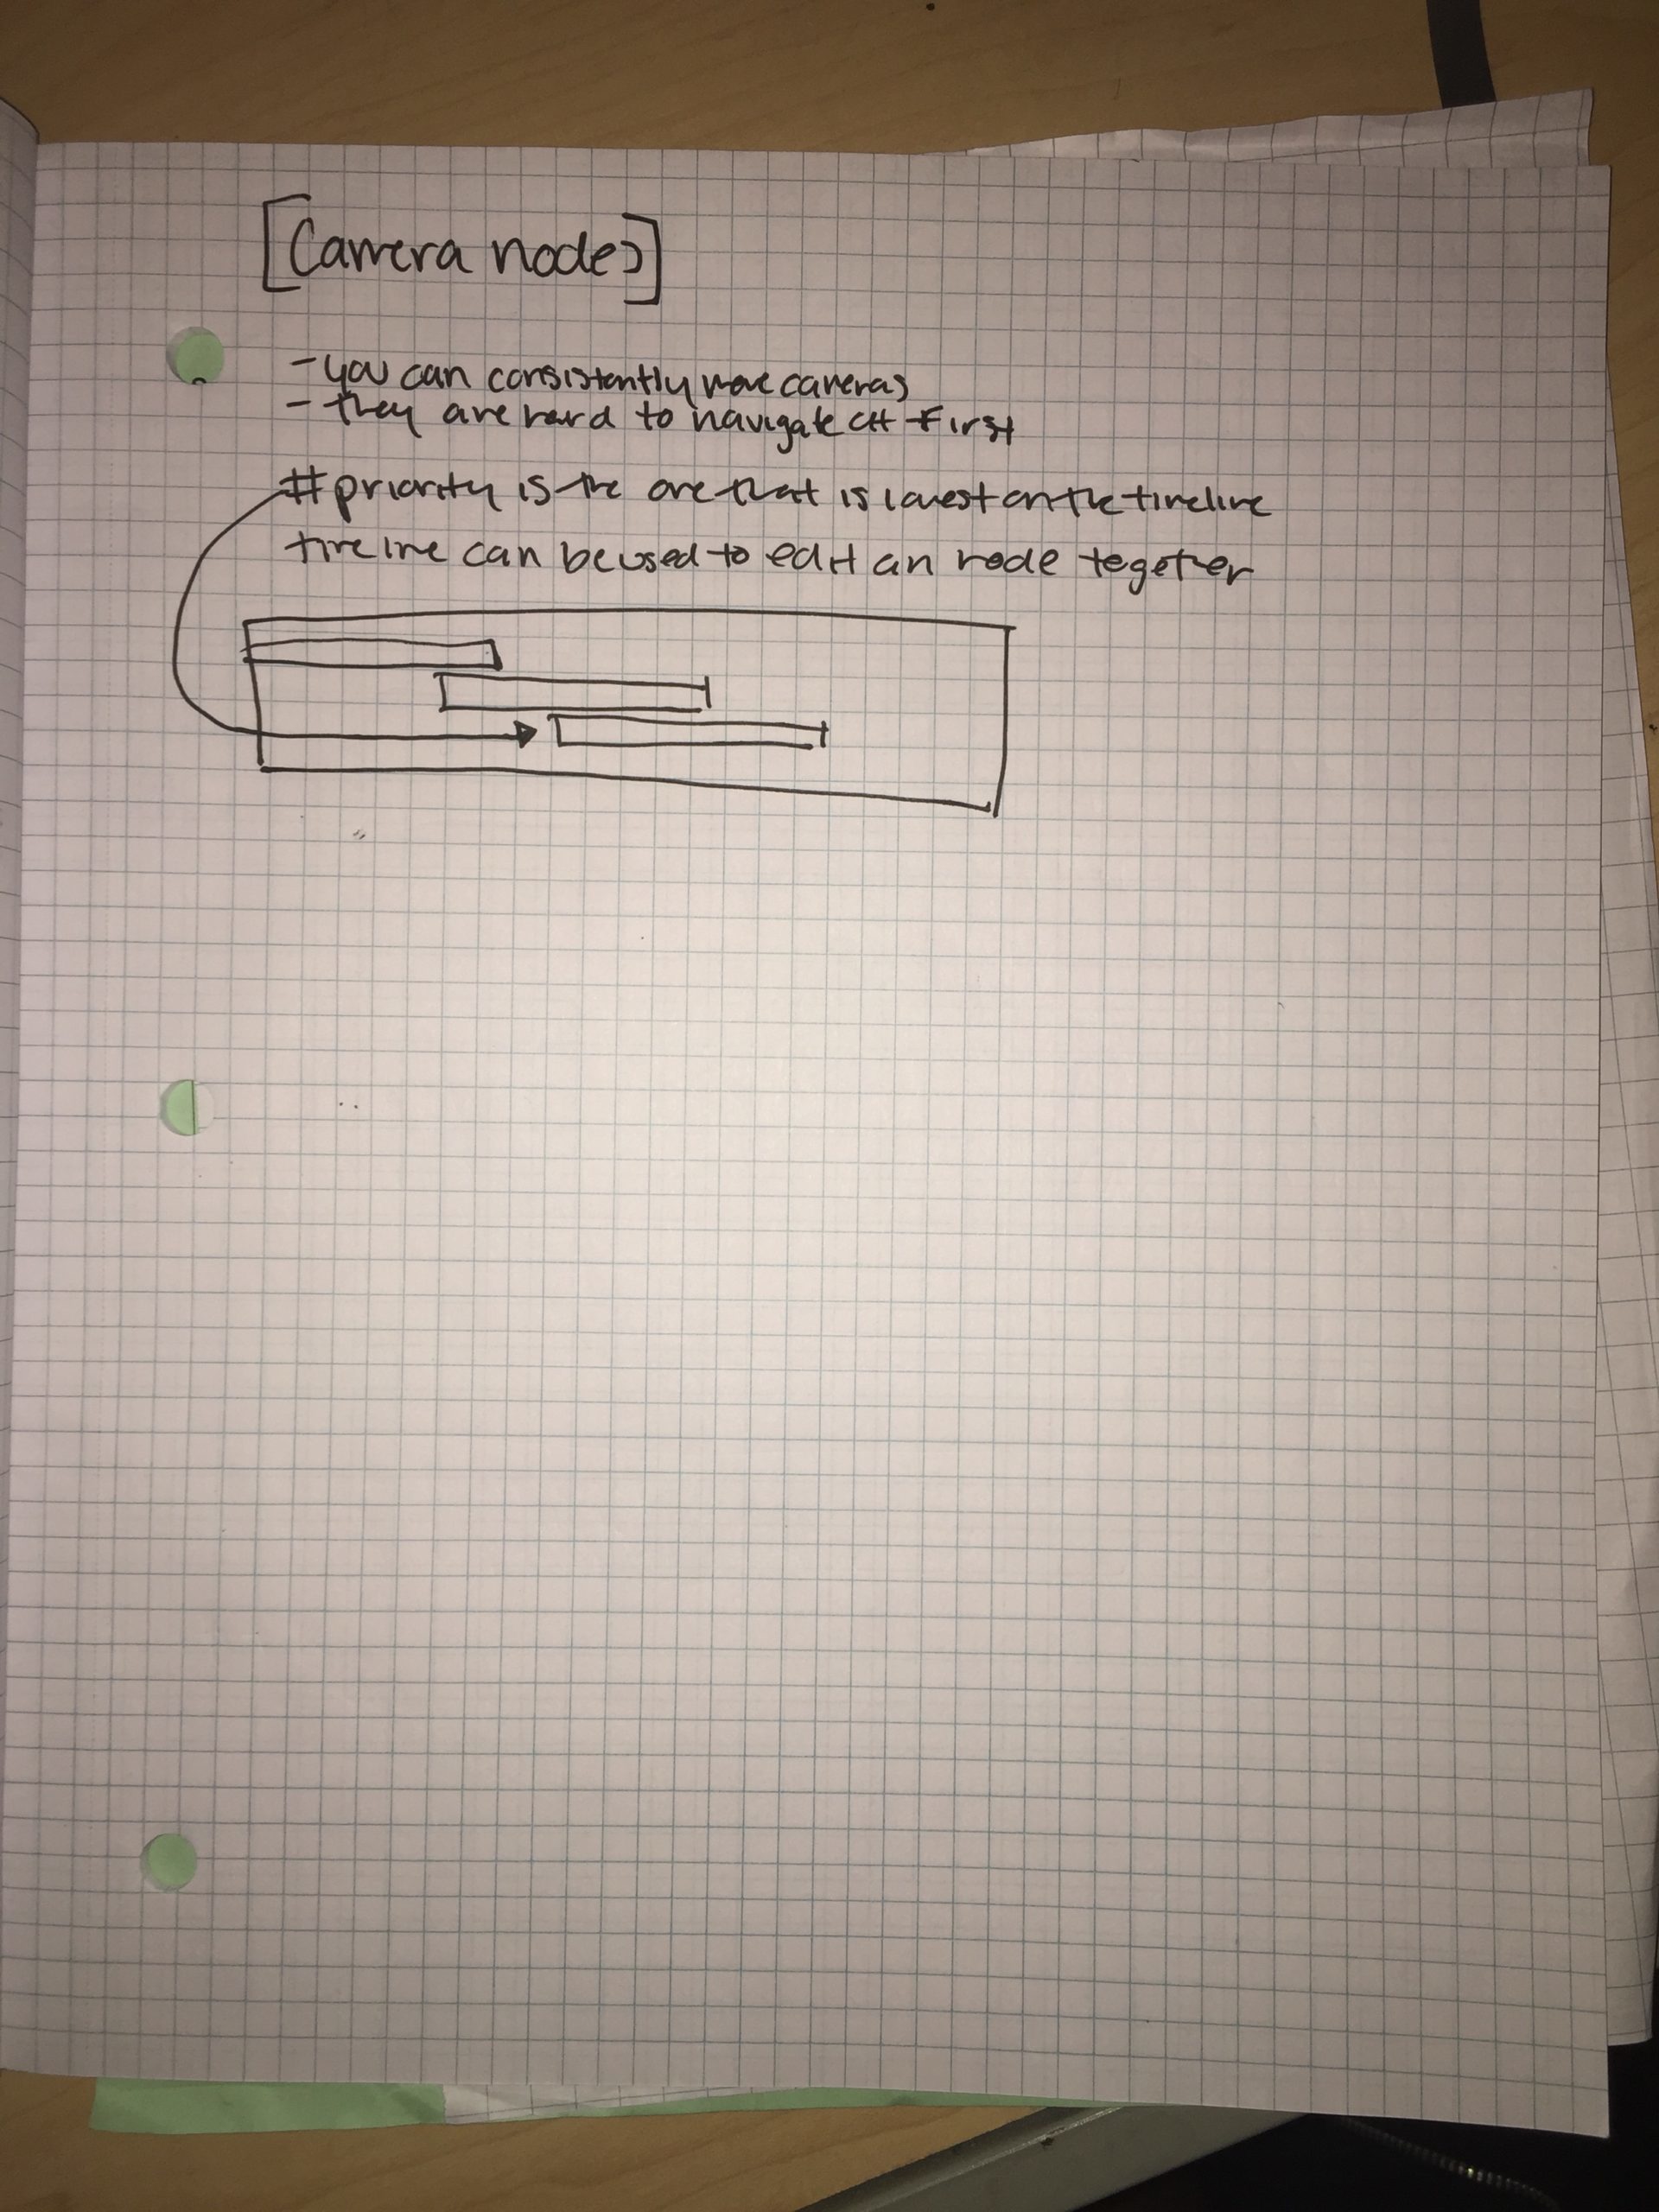 [Camera nodes]
- you can consistently move cameras
- they are hard to navigate at first
# priority is the one that is lowest on the timeline
timeline can be used to edit an node together